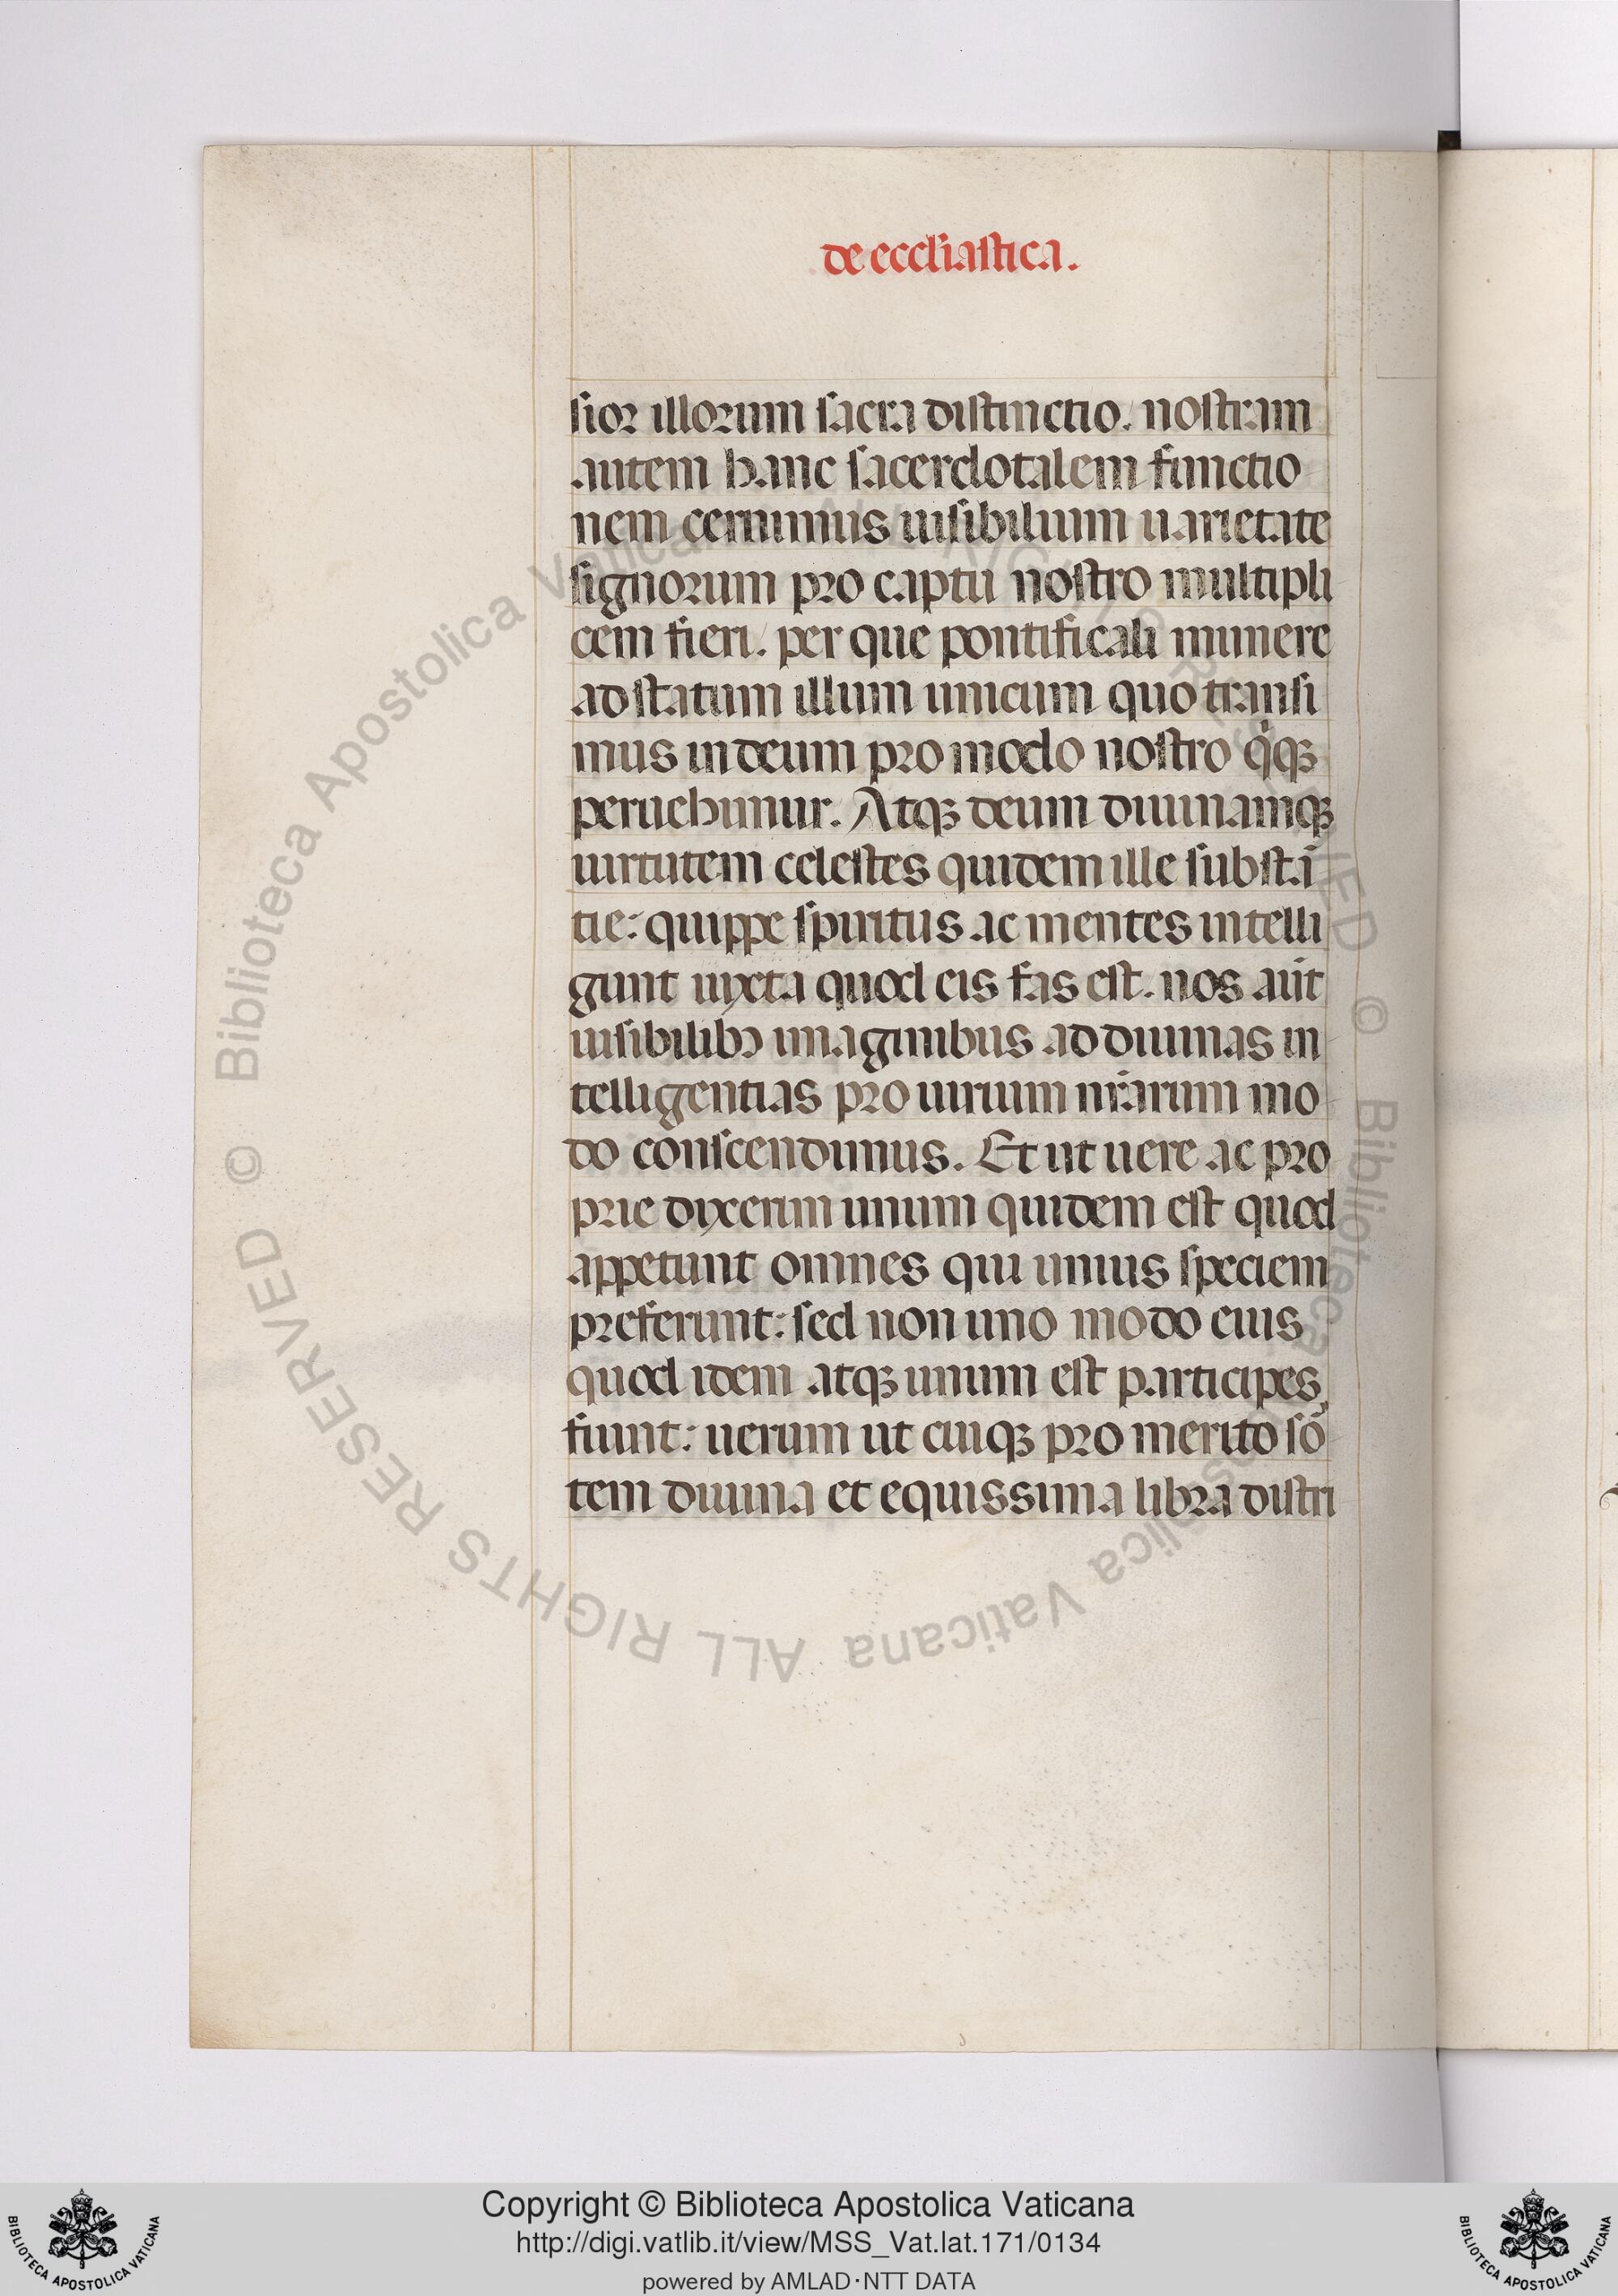 de eccl'iastica.
sior illorum sacra distinctio. nostram
autem hanc sacerdotalem functio
nem cernimus uisibilium uarietate
signorum pro captu nostro multipli
cem fieri. per que pontificali munere
ad statum illum unicum quo transi
mus in deum pro modo nostro q̊qꝫ
peruehimur. Atqꝫ deum diuinamqꝫ
uirtutem celestes quidem ille substā
tie: quippe spiritus ac mentes intelli
gunt iuxta quod eis fas est. nos aut̄
uisibilibꝰ imaginibus ad diuinas in
telligentias pro uirium nr̄arum mo
do conscendimus. Et ut uere ac pro
prie dixerim unum quidem est quod
appetunt omnes qui unius speciem
preferunt: sed non uno modo eius
quod idem atqꝫ unum est participes
fiunt: uerum ut cuiqꝫ pro merito so᷑
tem diuina et equissima libra distri
© Biblioteca Apostolica Vaticana ALL RIGHTS RESERVED © Biblioteca Apostolica Vaticana ALL RIGHTS RESERVED
Copyright © Biblioteca Apostolica Vaticana
http://digi.vatlib.it/view/MSS_Vat.lat.171/0134
powered by AMLAD·NTT DATA
BIBLIOTECA APOSTOLICA VATICANA
BIBLIOTECA APOSTOLICA VATICANA